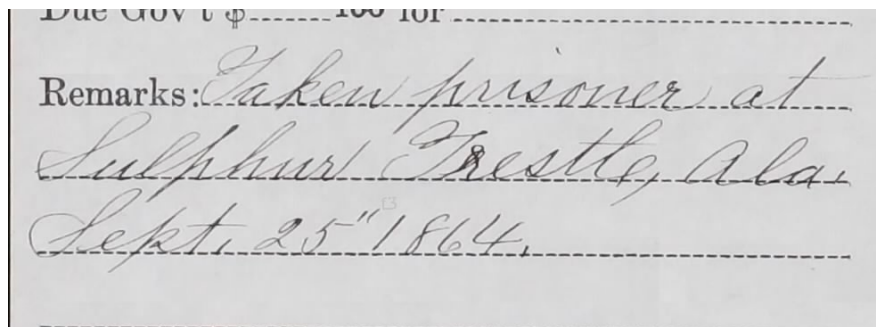 Due Gov't $ 100 for
Remarks: Taken prisoner at
Sulphur Trestle, Ala.
Sept. 25" 1864.